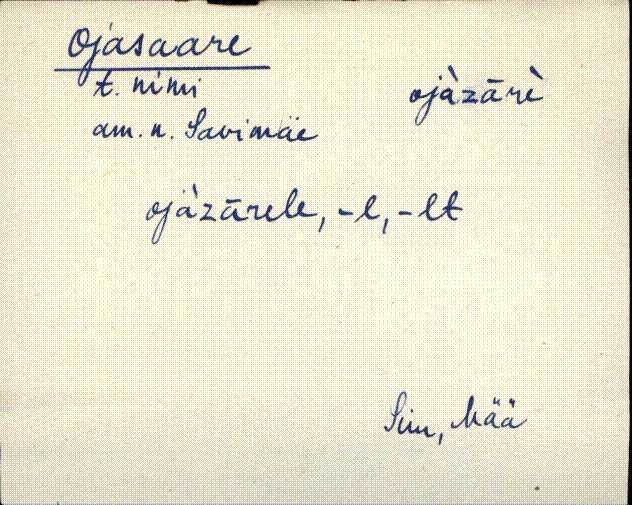 Ojasaare
t. nimi ojàzārè
am. n. Savimäe
ojàzārele, -l, -lt
Sim, Mää